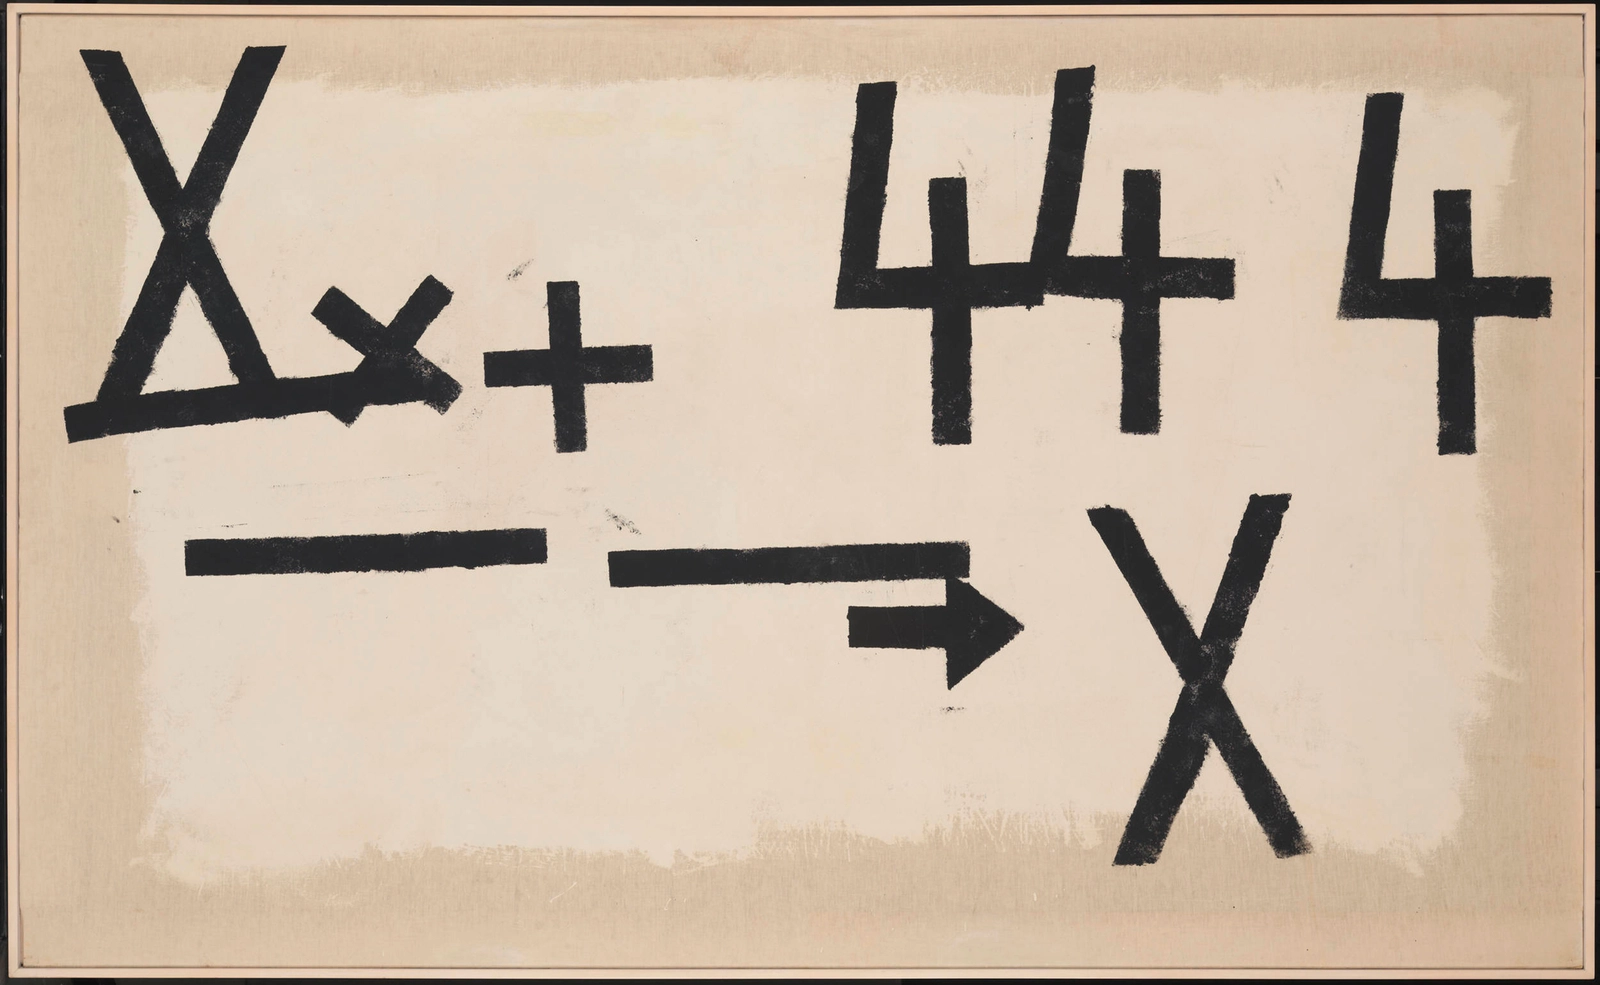 X × + 44 4
— — → X